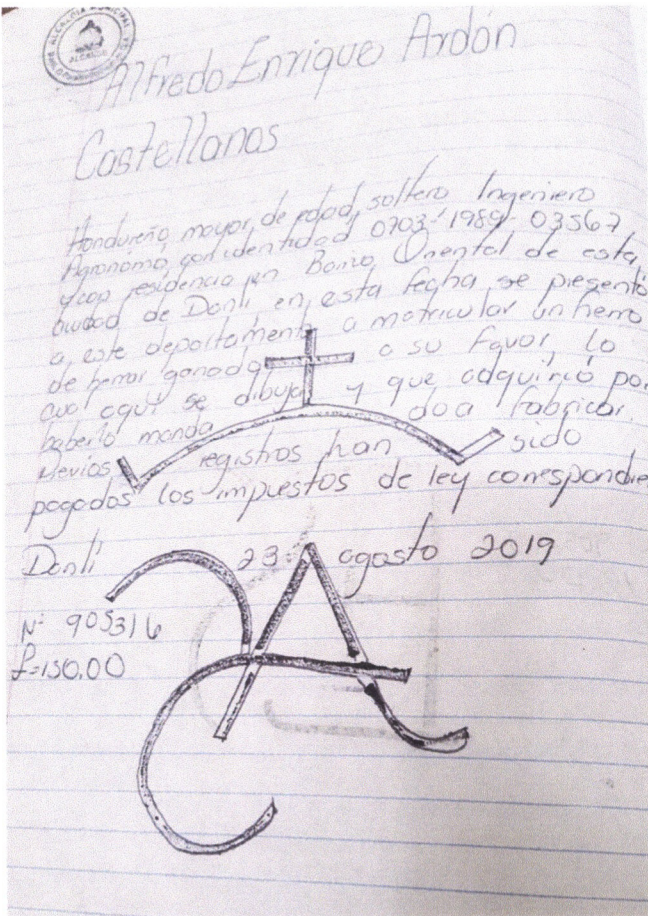 ALCALDIA MUNICIPAL
ALCALDE
Alfredo Enrique Ardón
Castellanos
Hondureño mayor de edad, soltero Ingeniero
Agronómo con identidad 0703-1989-03567
y con residencia en Barrio Oriental de esta
ciudad de Danlí, en esta fecha se presentó
a este departamento a matricular un fierro
de herrar ganado a su favor, lo
cual aquí se dibuja y que adquirió por
haberlo mandado a fabricar.
registros han sido
pagados los impuestos de ley correspondie
Danlí 23 agosto 2019
Nº 905316
L=150.00